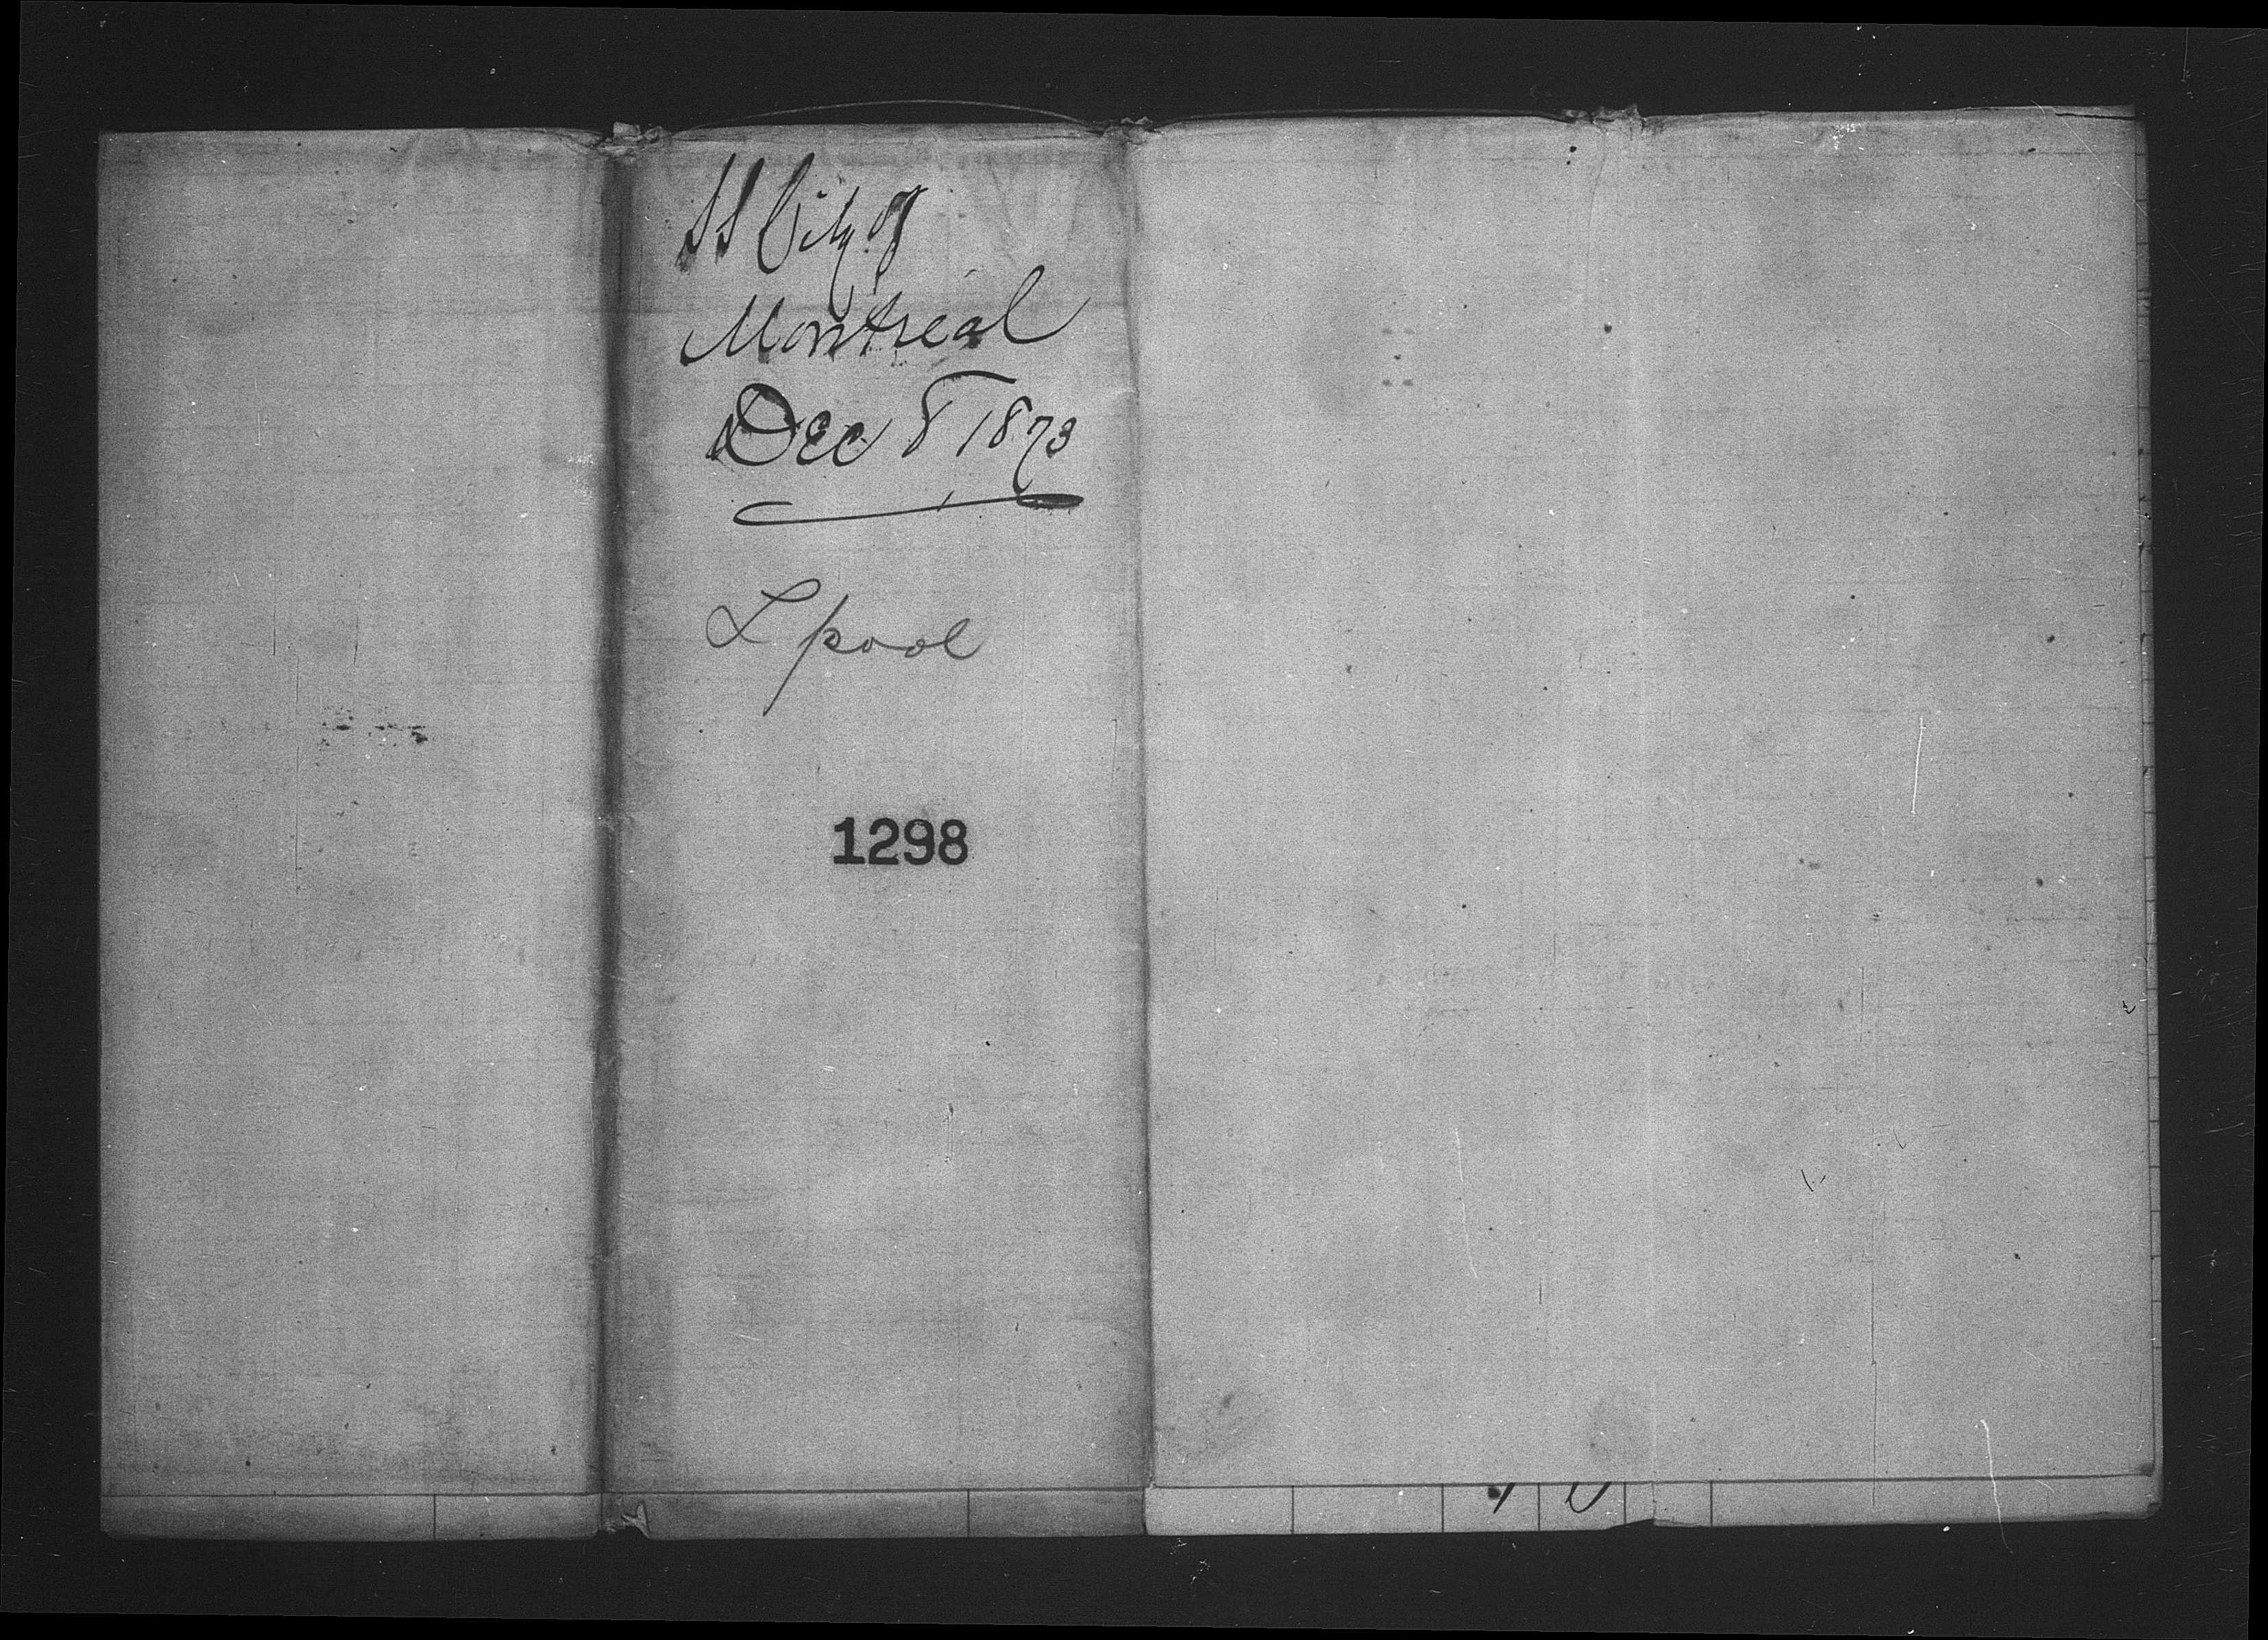 SS City of
Montreal
Dec 8 1873
Lpool
1298